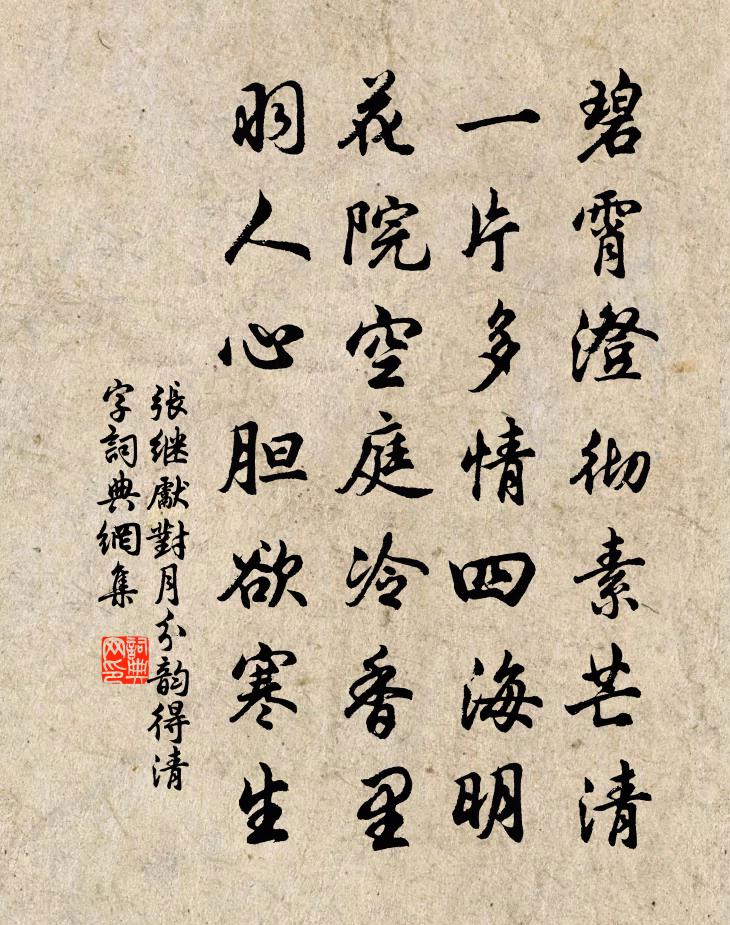 碧霄澄彻素芒清
一片多情四海明
花院空庭冷香里
羽人心胆欲寒生
張继獻對月分韵得清
字詞典網集
詞典
网印